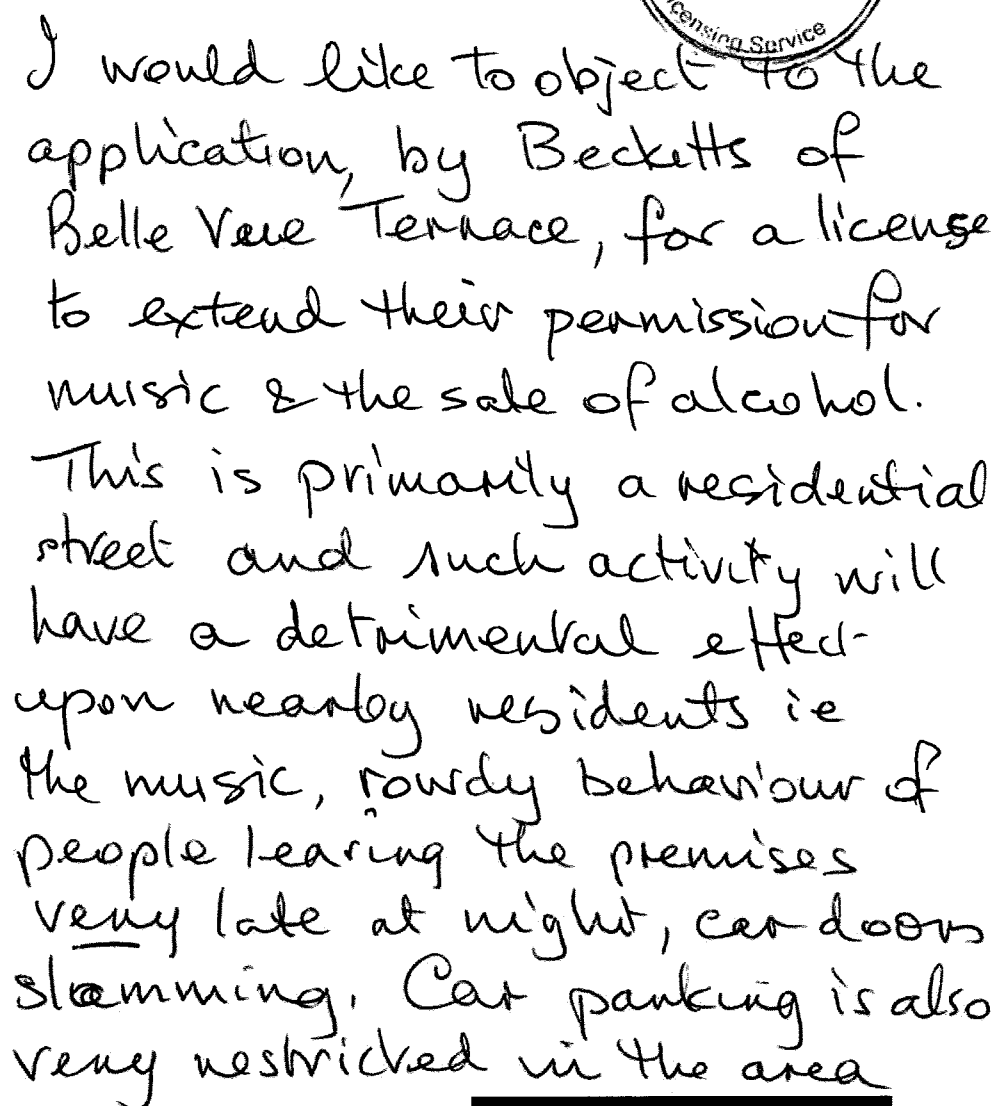 Licensing Service
I would like to object to the
application, by Becketts of
Belle Vue Terrace, for a license
to extend their permission for
music & the sale of alcohol.
This is primarily a residential
street and such activity will
have a detrimental effect
upon nearby residents ie
the music, rowdy behaviour of
people leaving the premises
very late at night, car doors
slamming. Car parking is also
very restricted in the area